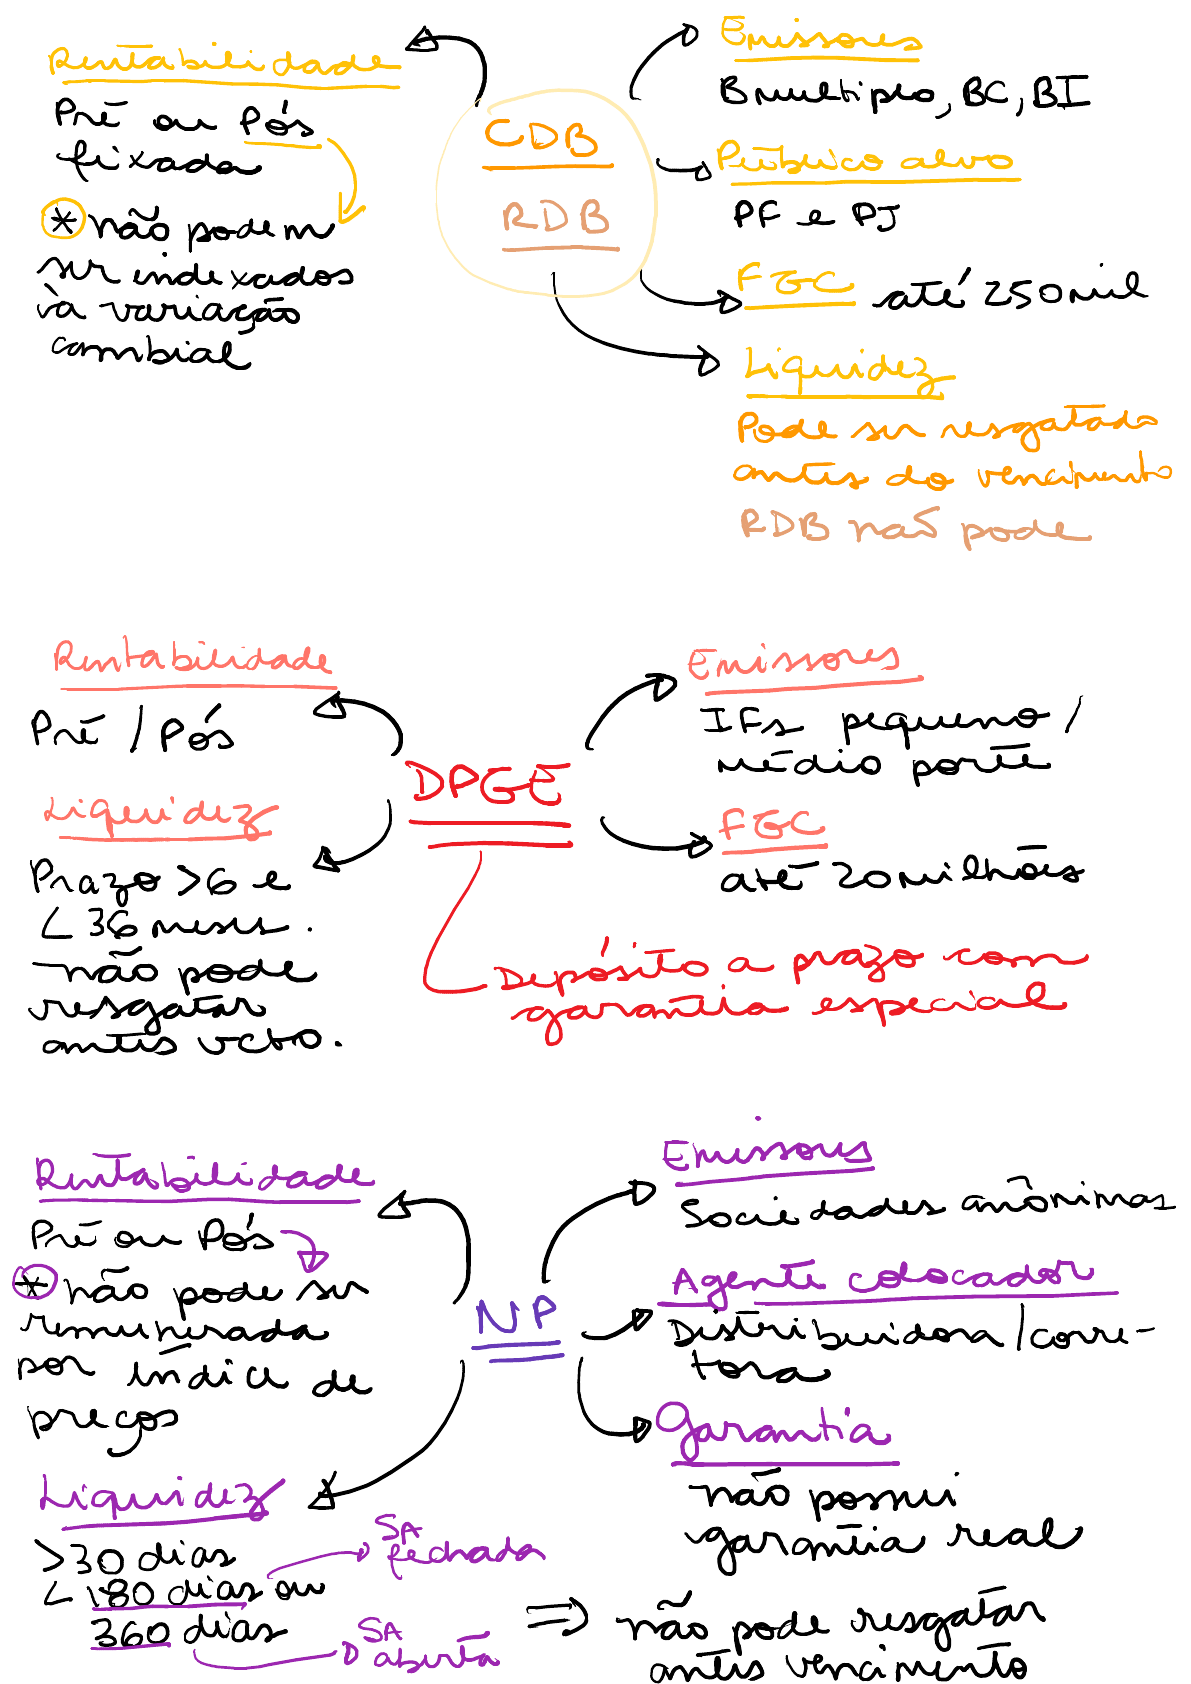 Rentabilidade
Pré ou Pós
fixada
* não podem
ser indexados
à variação
cambial
CDB
RDB
Emissores
B multiplo, BC, BI
Público alvo
PF e PJ
FGC até 250 mil
Liquidez
Pode ser resgatado
antes do vencimento
RDB não pode
Rentabilidade
Pré / Pós
Liquidez
Prazo >6 e
< 36 meses.
não pode
resgatar
antes vcto.
DPGE
Depósito a prazo com
garantia especial
Emissores
IFs pequeno /
médio porte
FGC
até 20 milhões
Rentabilidade
Pré ou Pós
* não pode ser
remunerada
por índice de
preços
Liquidez
>30 dias
< 180 dias ou
360 dias
SA
fechada
SA
aberta
NP
Emissores
Sociedades anônimas
Agente colocador
Distribuidora/corre-
tora
Garantia
não possui
garantia real
⇒ não pode resgatar
antes vencimento